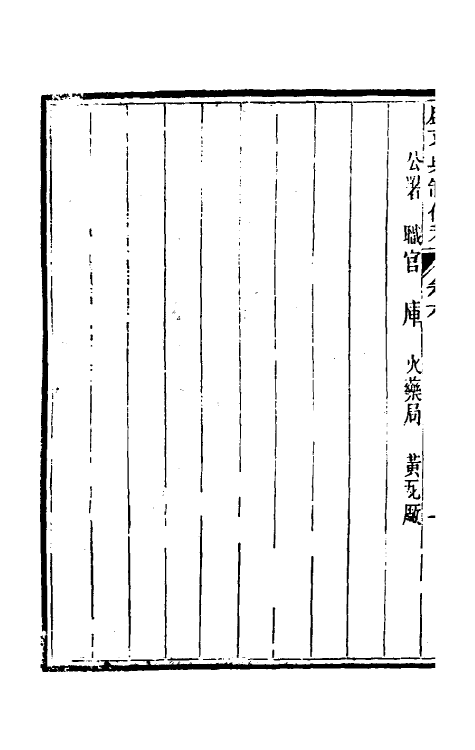 公署　職官　庫　火藥局　黃瓦廠